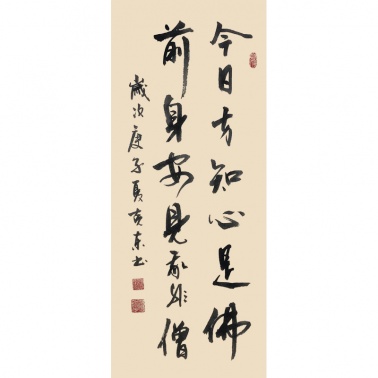 今日方知心是佛
前身安見我非僧
歲次庚子夏黃東书